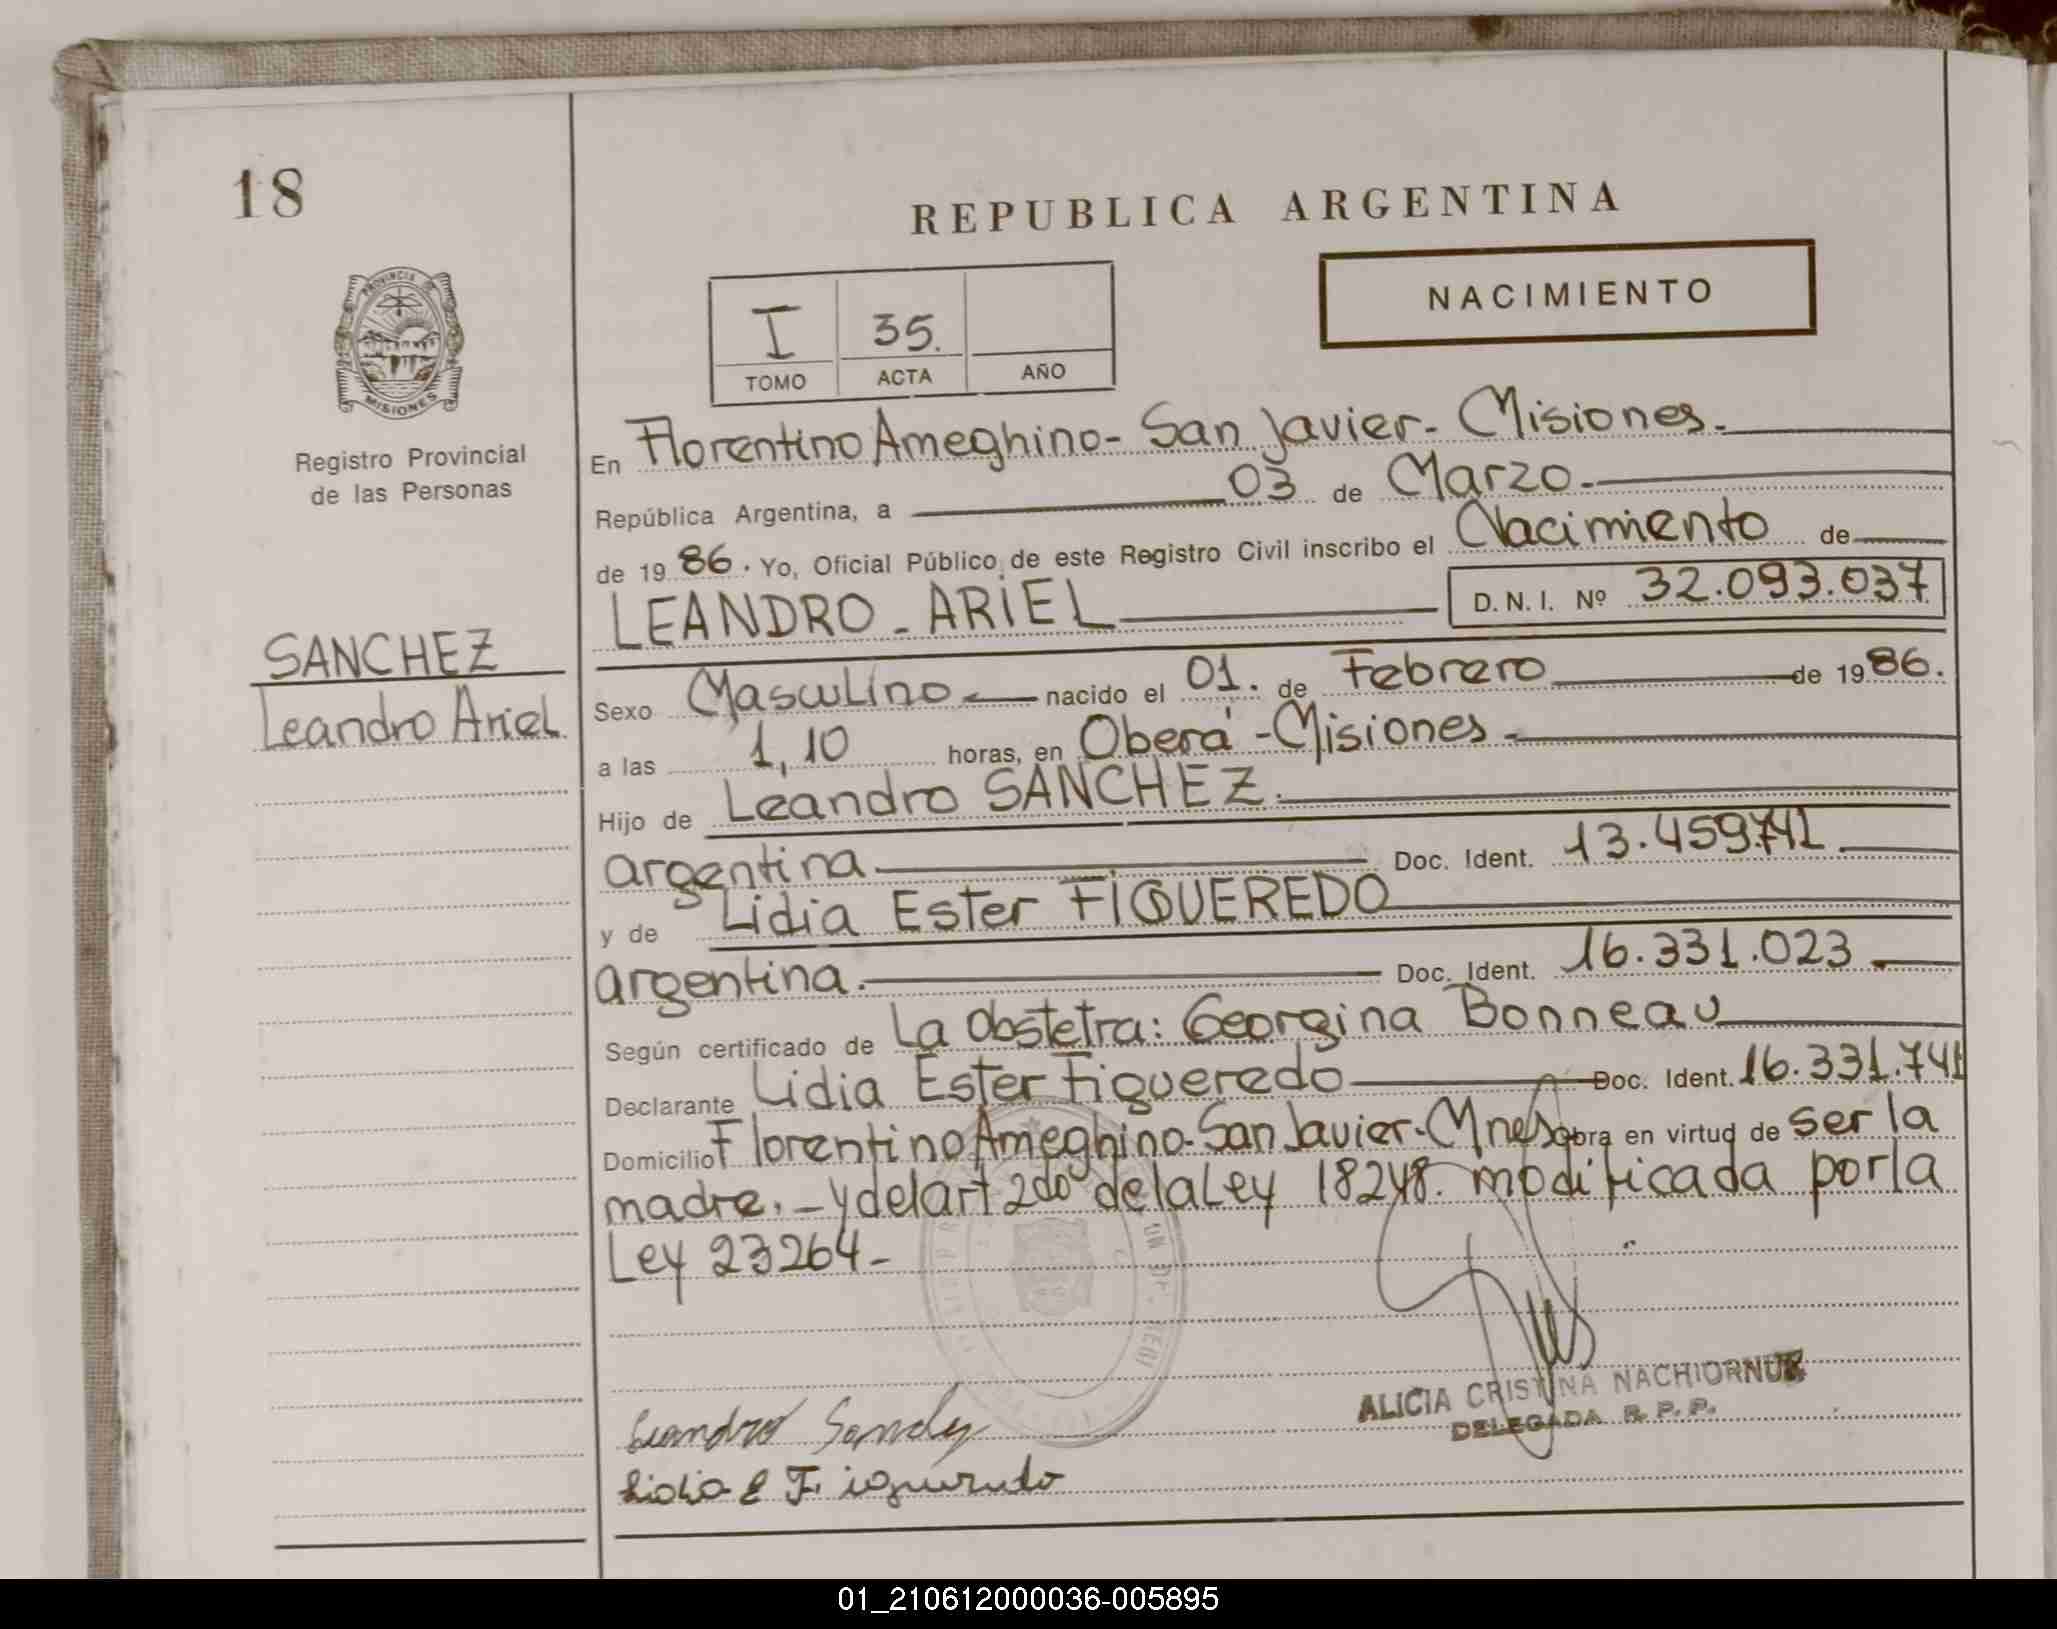 18
REPUBLICA ARGENTINA
NACIMIENTO
I 35.
TOMO ACTA AÑO
PROVINCIA DE
MISIONES
Registro Provincial
de las Personas
SANCHEZ
Leandro Ariel
En Florentino Ameghino - San Javier - Misiones.
República Argentina, a 03 de Marzo.
de 1986. Yo, Oficial Público de este Registro Civil inscribo el Nacimiento de
LEANDRO - ARIEL D.N.I. Nº 32.093.037
Sexo Masculino nacido el 01. de Febrero de 1986.
a las 1,10 horas, en Oberá - Misiones -
Hijo de Leandro SANCHEZ.
argentina Doc. Ident. 13.459.741
y de Lidia Ester FIGUEREDO
argentina. Doc. Ident. 16.331.023
Según certificado de La Obstetra: Georgina Bonneau
Declarante Lidia Ester Figueredo Doc. Ident. 16.331.741
Domicilio Florentino Ameghino - San Javier - Mnes obra en virtud de ser la
madre. - y del art 2do de la Ley 18248. modificada por la
Ley 23264 -
ALICIA CRISTINA NACHIORNUK
DELEGADA R. P. P.
Leandro Sanchez
Lidia E Figueredo
01_210612000036-005895